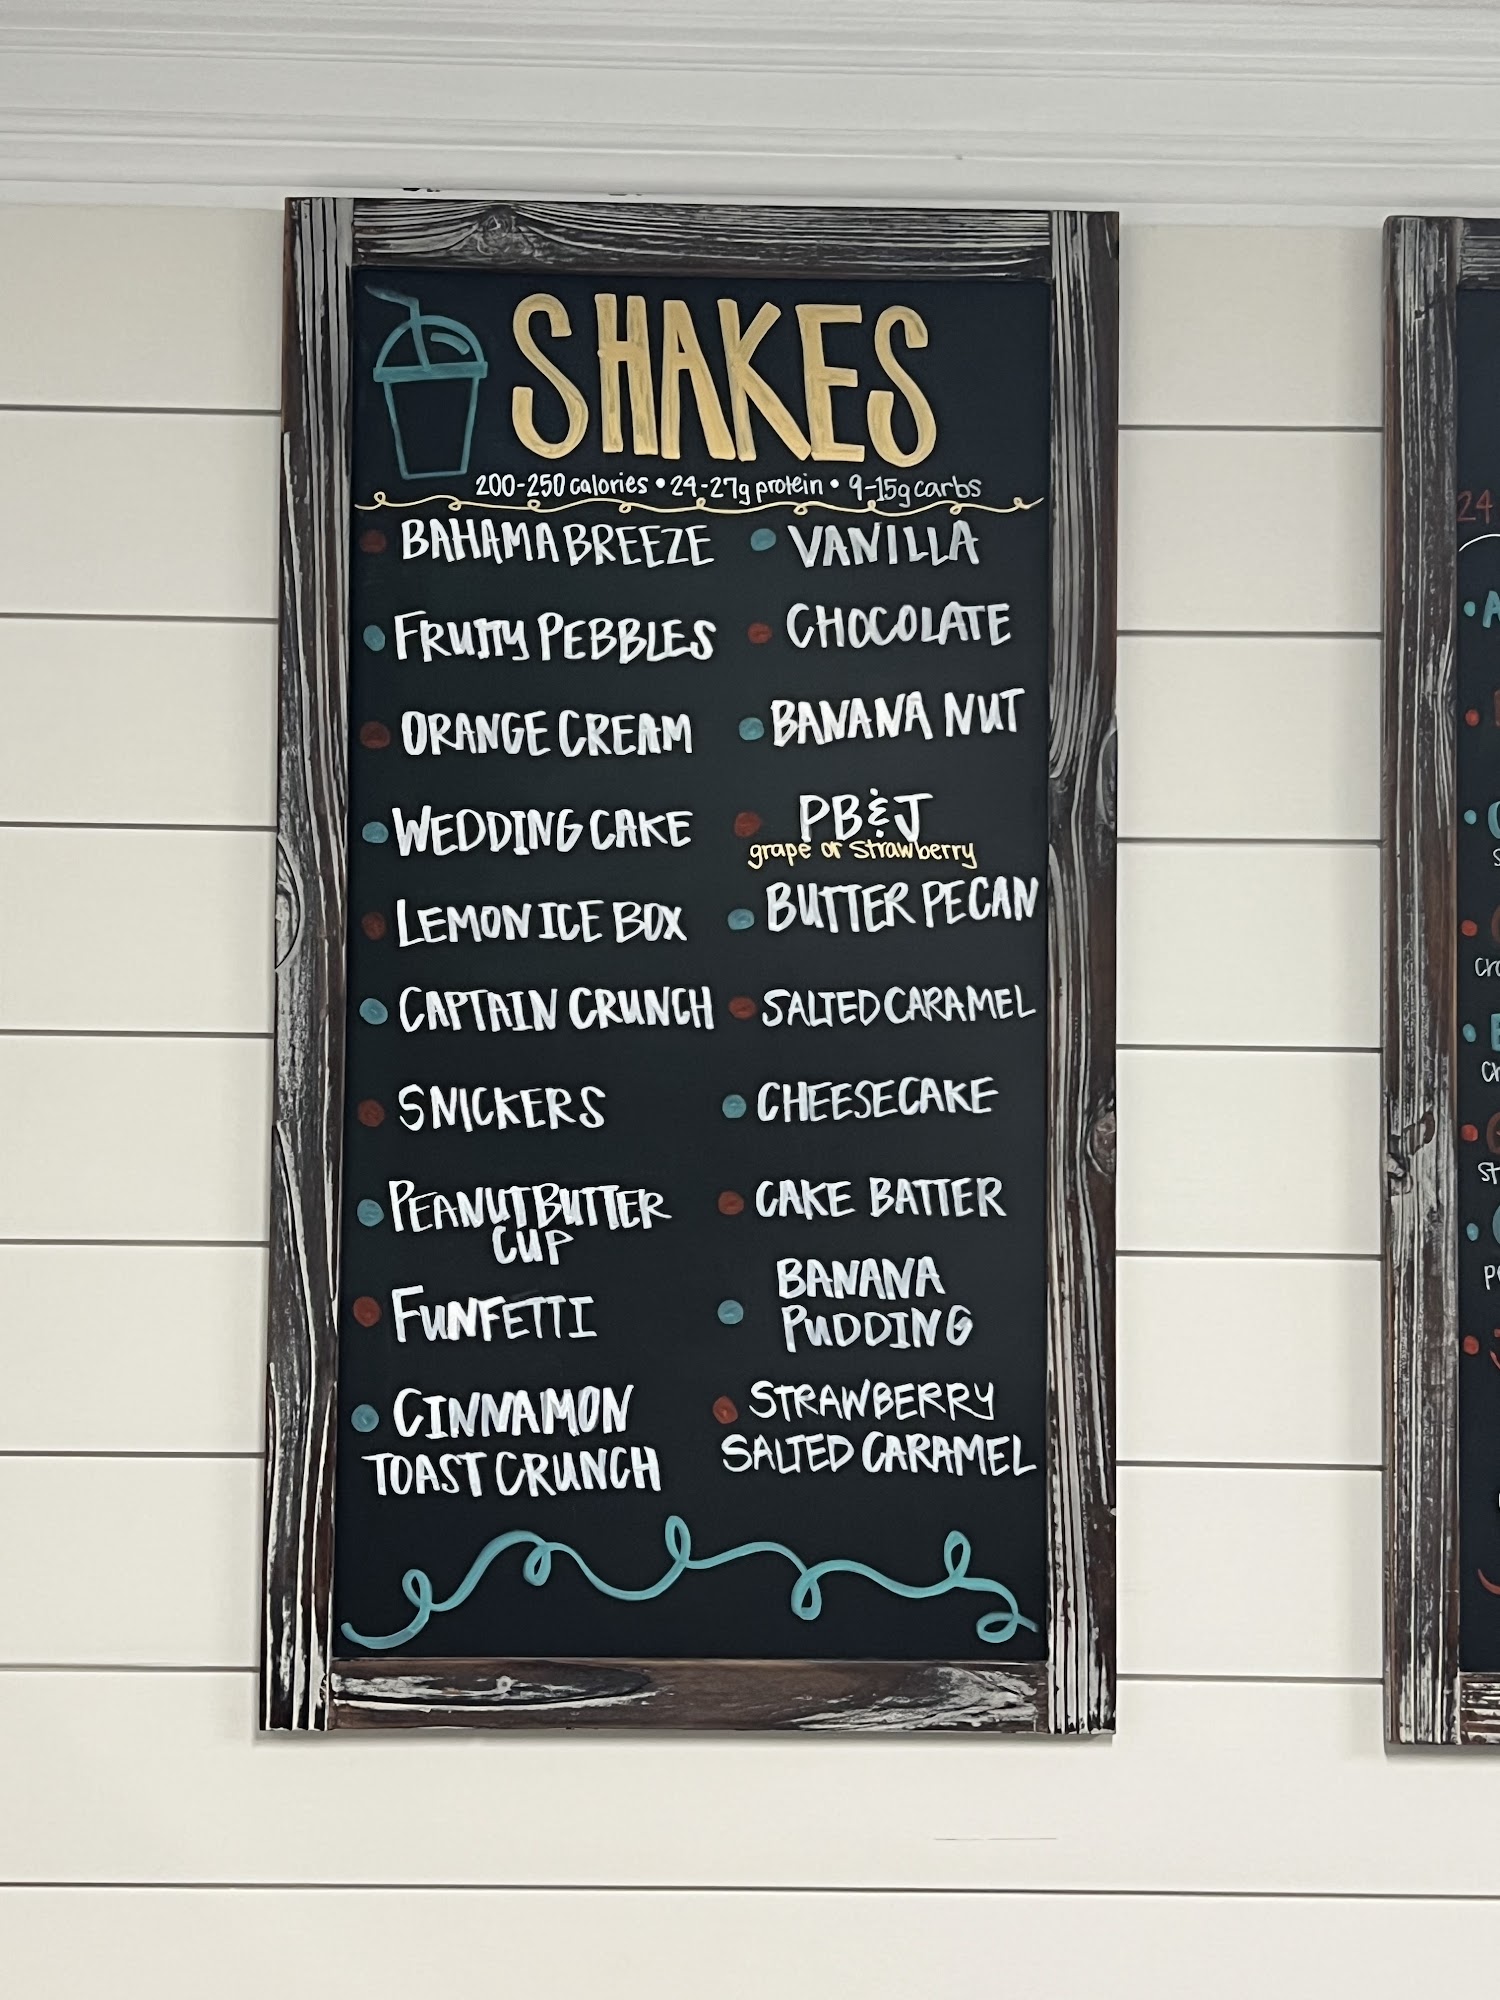 SHAKES
200-250 calories • 24-27g protein • 9-15g carbs
BAHAMA BREEZE
FRUITY PEBBLES
ORANGE CREAM
WEDDING CAKE
LEMON ICE BOX
CAPTAIN CRUNCH
SNICKERS
PEANUT BUTTER
CUP
FUNFETTI
CINNAMON
TOAST CRUNCH
VANILLA
CHOCOLATE
BANANA NUT
PB&J
grape or strawberry
BUTTER PECAN
SALTED CARAMEL
CHEESECAKE
CAKE BATTER
BANANA
PUDDING
STRAWBERRY
SALTED CARAMEL
24